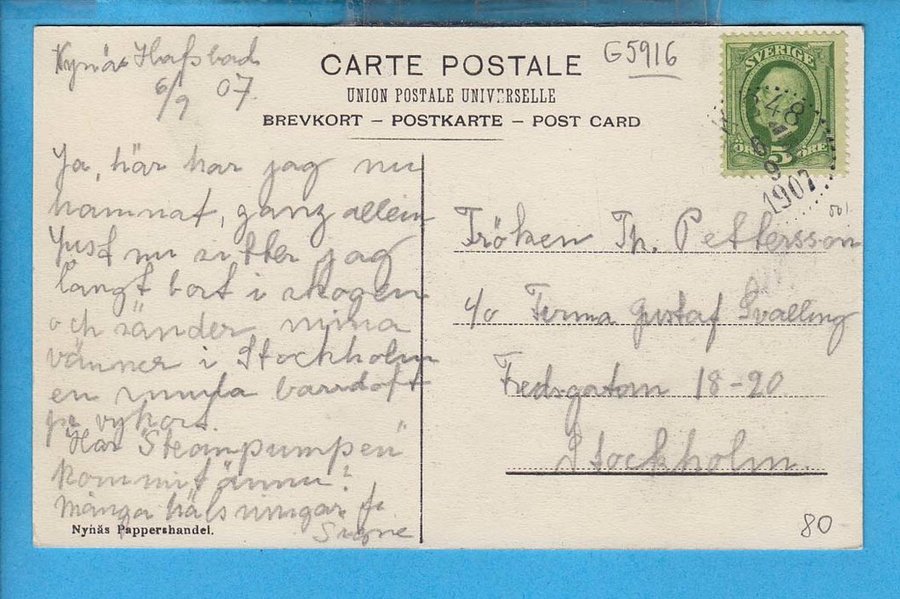 Nynäs Hafsbad
6/9 07.
CARTE POSTALE
UNION POSTALE UNIVERSELLE
BREVKORT – POSTKARTE – POST CARD
G5916
SVERIGE
5
ÖRE ÖRE
48
6
9
1907
501
Ja, här har jag nu
hamnat, ganz allein
Just nu sitter jag
långt bort i skogen
och sänder mina
vänner i Stockholm
en smula barrdoft
på vykort.
Har "Steampumpen"
kommit ännu?
Många hälsningar fr
Signe
Nynäs Pappershandel.
Fröken Th. Pettersson
c/o Firma Gustaf Svalling
Fredsgatan 18-20
Stockholm.
80